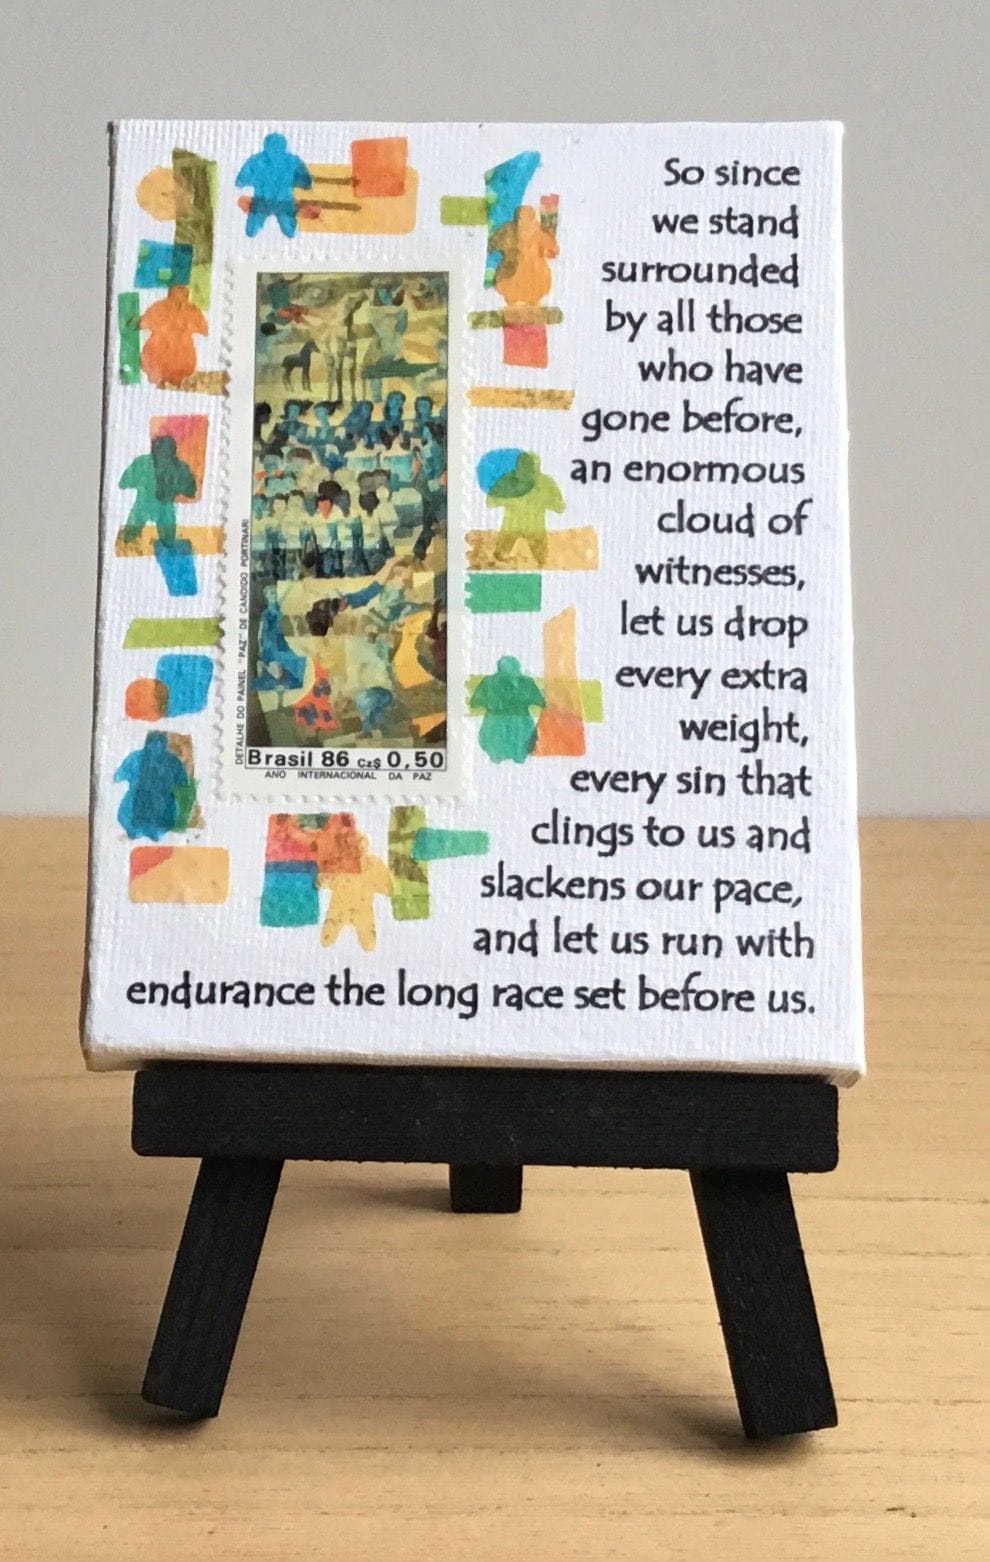 So since
we stand
surrounded
by all those
who have
gone before,
an enormous
cloud of
witnesses,
let us drop
every extra
weight,
every sin that
clings to us and
slackens our pace,
and let us run with
endurance the long race set before us.
DETALHE DO PAINEL "PAZ" DE CANDIDO PORTINARI
Brasil 86 Cz$ 0,50
ANO INTERNACIONAL DA PAZ